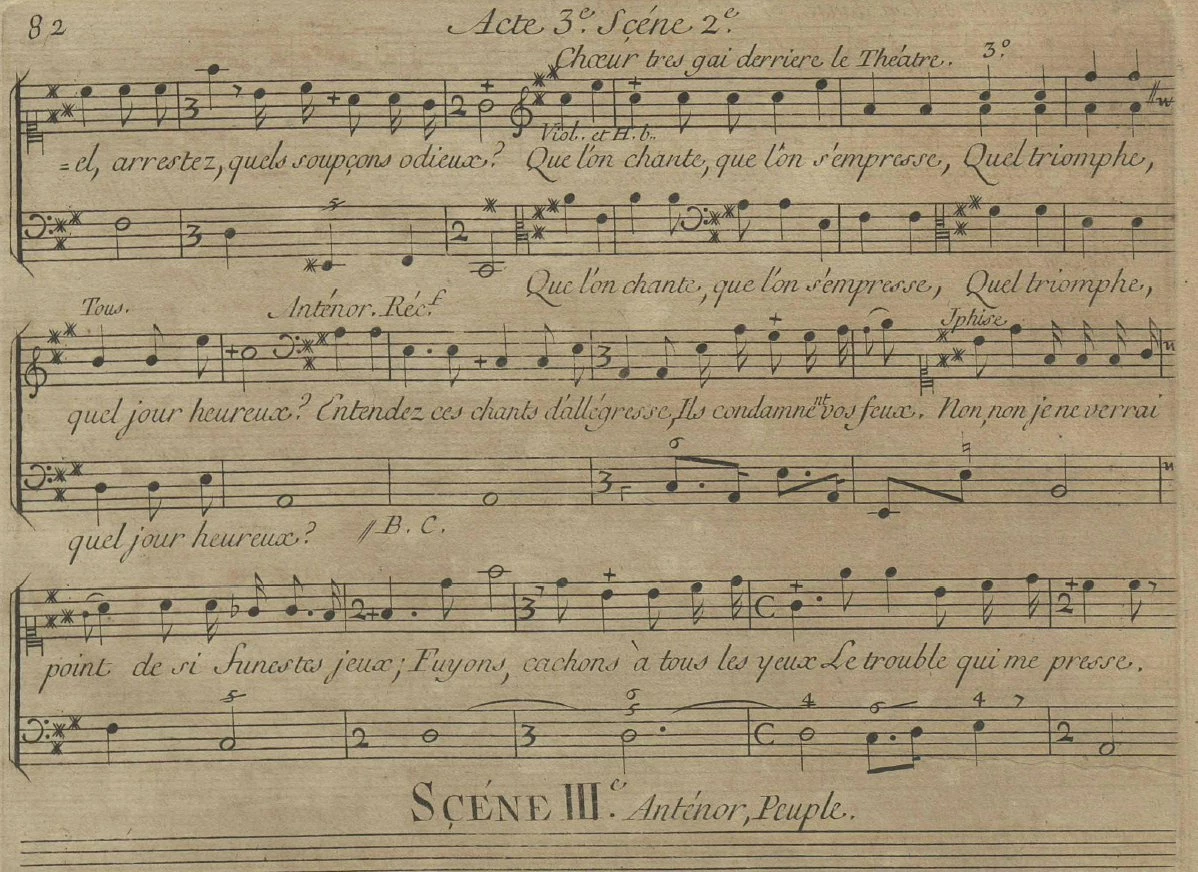 82 Acte 3.e Sçéne 2.e
Chœur tres gai derriere le Théatre. 3.o
Viol. et H.b.
=el, arrestez, quels soupçons odieux? Que l'on chante, que l'on s'empresse, Quel triomphe,
Que l'on chante, que l'on s'empresse, Quel triomphe,
Tous. Anténor. Réc.f Jphise
quel jour heureux? Entendez ces chants d'allégresse, Ils condamne.nt vos feux. Non, non je ne verrai
quel jour heureux? B. C.
point de si funestes jeux; Fuyons, cachons à tous les yeux Le trouble qui me presse.
SÇÉNE III.e Anténor, Peuple.